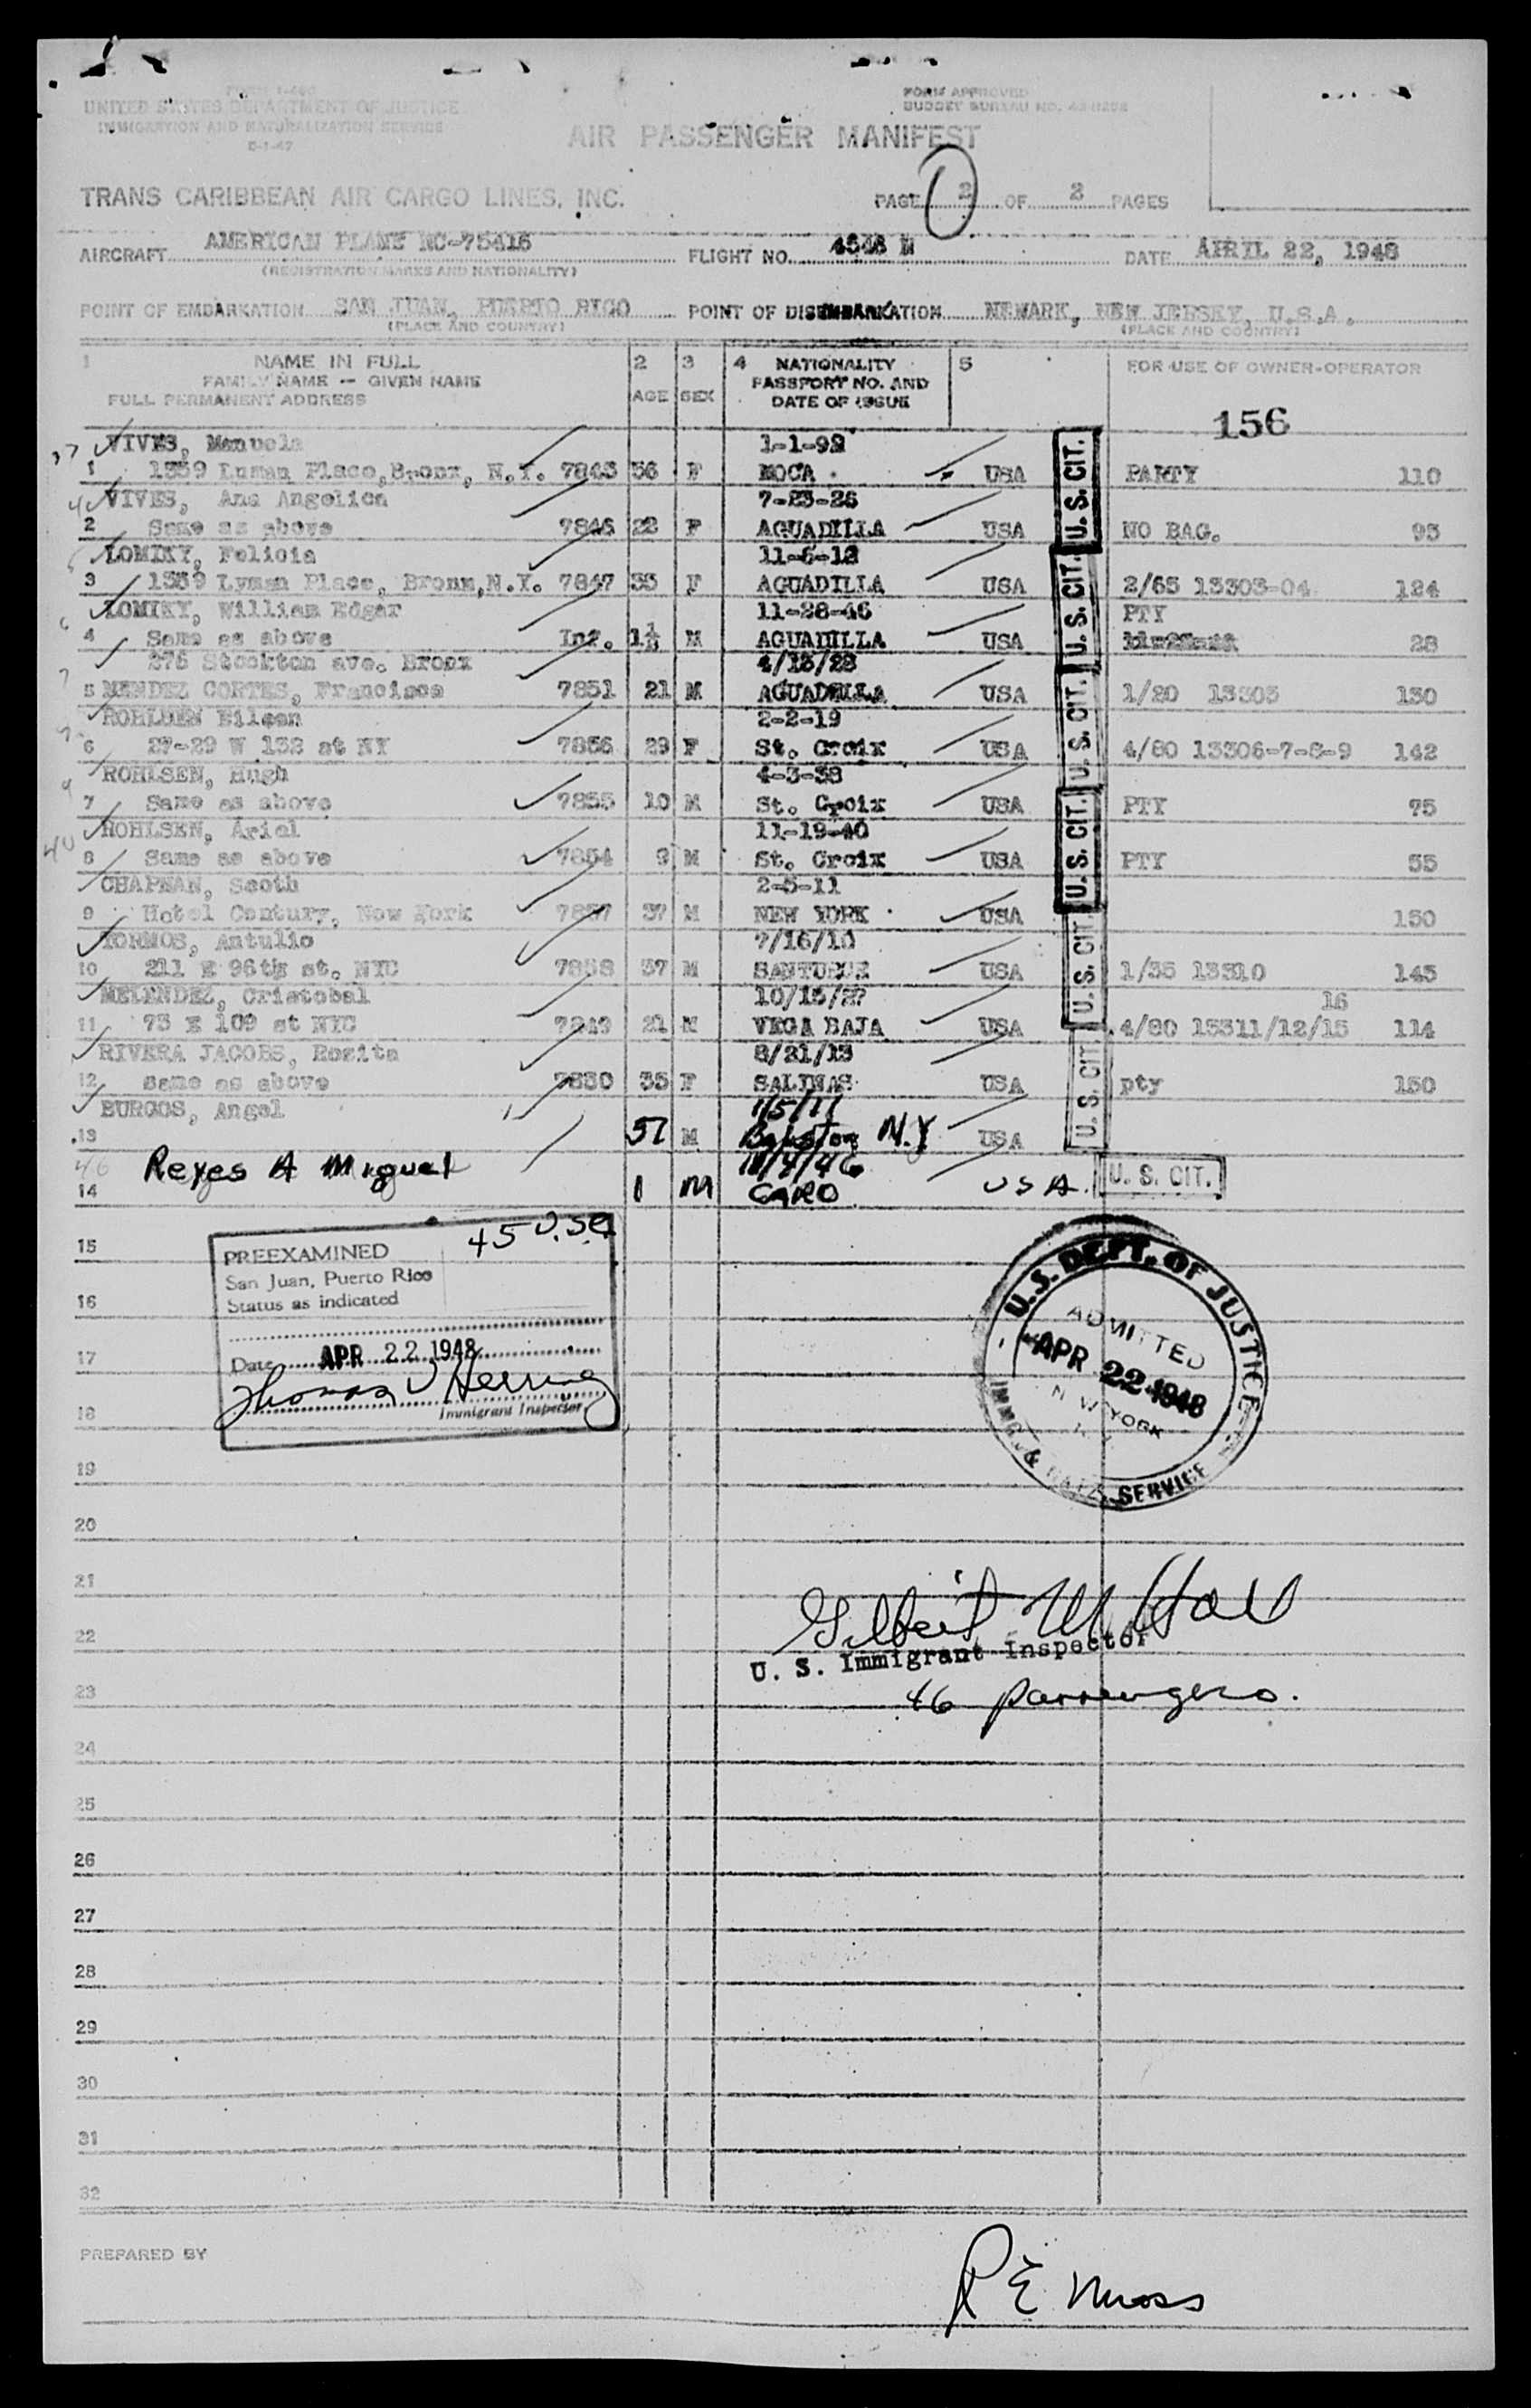 UNITED STATES DEPARTMENT OF JUSTICE
IMMIGRATION AND NATURALIZATION SERVICE
FORM APPROVED
BUDGET BUREAU NO.
AIR PASSENGER MANIFEST
TRANS CARIBBEAN AIR CARGO LINES, INC.
PAGE 2 OF 2 PAGES
AIRCRAFT AMERICAN PLANE NC-75416
(REGISTRATION MARKS AND NATIONALITY)
FLIGHT NO. 4548 N
DATE APRIL 22, 1948
POINT OF EMBARKATION SAN JUAN, PUERTO RICO
(PLACE AND COUNTRY)
POINT OF DISEMBARKATION NEWARK, NEW JERSEY, U.S.A.
(PLACE AND COUNTRY)
1 NAME IN FULL
FAMILY NAME — GIVEN NAME
FULL PERMANENT ADDRESS
2 AGE
3 SEX
4 NATIONALITY
PASSPORT NO. AND
DATE OF ISSUE
5
FOR USE OF OWNER-OPERATOR
156
VIVES, Manuela 1-1-92
1 1359 Lyman Place, Bronx, N.Y. 7845 56 F MOCA USA PARTY 110
VIVES, Ana Angelica 7-23-26
2 Same as above 7846 22 F AGUADILLA USA NO BAG. 95
LOMIKY, Felicia 11-6-12
3 1359 Lyman Place, Bronx, N.Y. 7847 35 F AGUADILLA USA 2/65 13303-04 124
LOMIKY, William Edgar 11-28-46 PTY
4 Same as above Inf. M AGUADILLA USA 28
276 Stockton ave. Bronx 4/15/28
5 MENDEZ CORTES, Francisco 7851 21 M AGUADILLA USA 1/20 13305 130
ROHLSEN Eileen 2-2-19
6 27-29 W 132 st NY 7856 29 F St. Croix USA 4/80 13306-7-8-9 142
ROHLSEN, Hugh 4-3-38
7 Same as above 7855 10 M St. Croix USA PTY 75
ROHLSEN, Ariel 11-19-40
8 Same as above 7854 9 M St. Croix USA PTY 55
CHAPMAN, Scoth 2-5-11
9 Hotel Century, New York 7857 37 M NEW YORK USA 150
TORMOS, Antulio 7/16/10
10 211 E 96th st. NYC 7858 37 M SANTURCE USA 1/35 13310 145
MELENDEZ, Cristobal 10/15/27 16
11 73 E 109 st NYC 7849 21 M VEGA BAJA USA 4/80 15311/12/15 114
RIVERA JACOBS, Rosita 8/21/13
12 same as above 7830 35 F SALINAS USA pty 150
BURGOS, Angel 1/5/11
13 57 M N.Y USA
46 Reyes A Miguel 11/4/46
14 1 M CARO USA
U. S. CIT.
U. S. CIT.
U. S. CIT.
U. S. CIT.
U. S. CIT.
U. S. CIT.
U. S. CIT.
15
PREEXAMINED 45 U.S.C.
San Juan, Puerto Rico
Status as indicated
Date APR 22 1948
Immigrant Inspector
16
17
18
U.S. DEPT. OF JUSTICE
ADMITTED
APR 22 1948
IMMG. & NATZ. SERVICE
19
20
21
22
Gilbert M Hall
U. S. Immigrant Inspector
46 passengers.
23
24
25
26
27
28
29
30
31
32
PREPARED BY
R E Moss